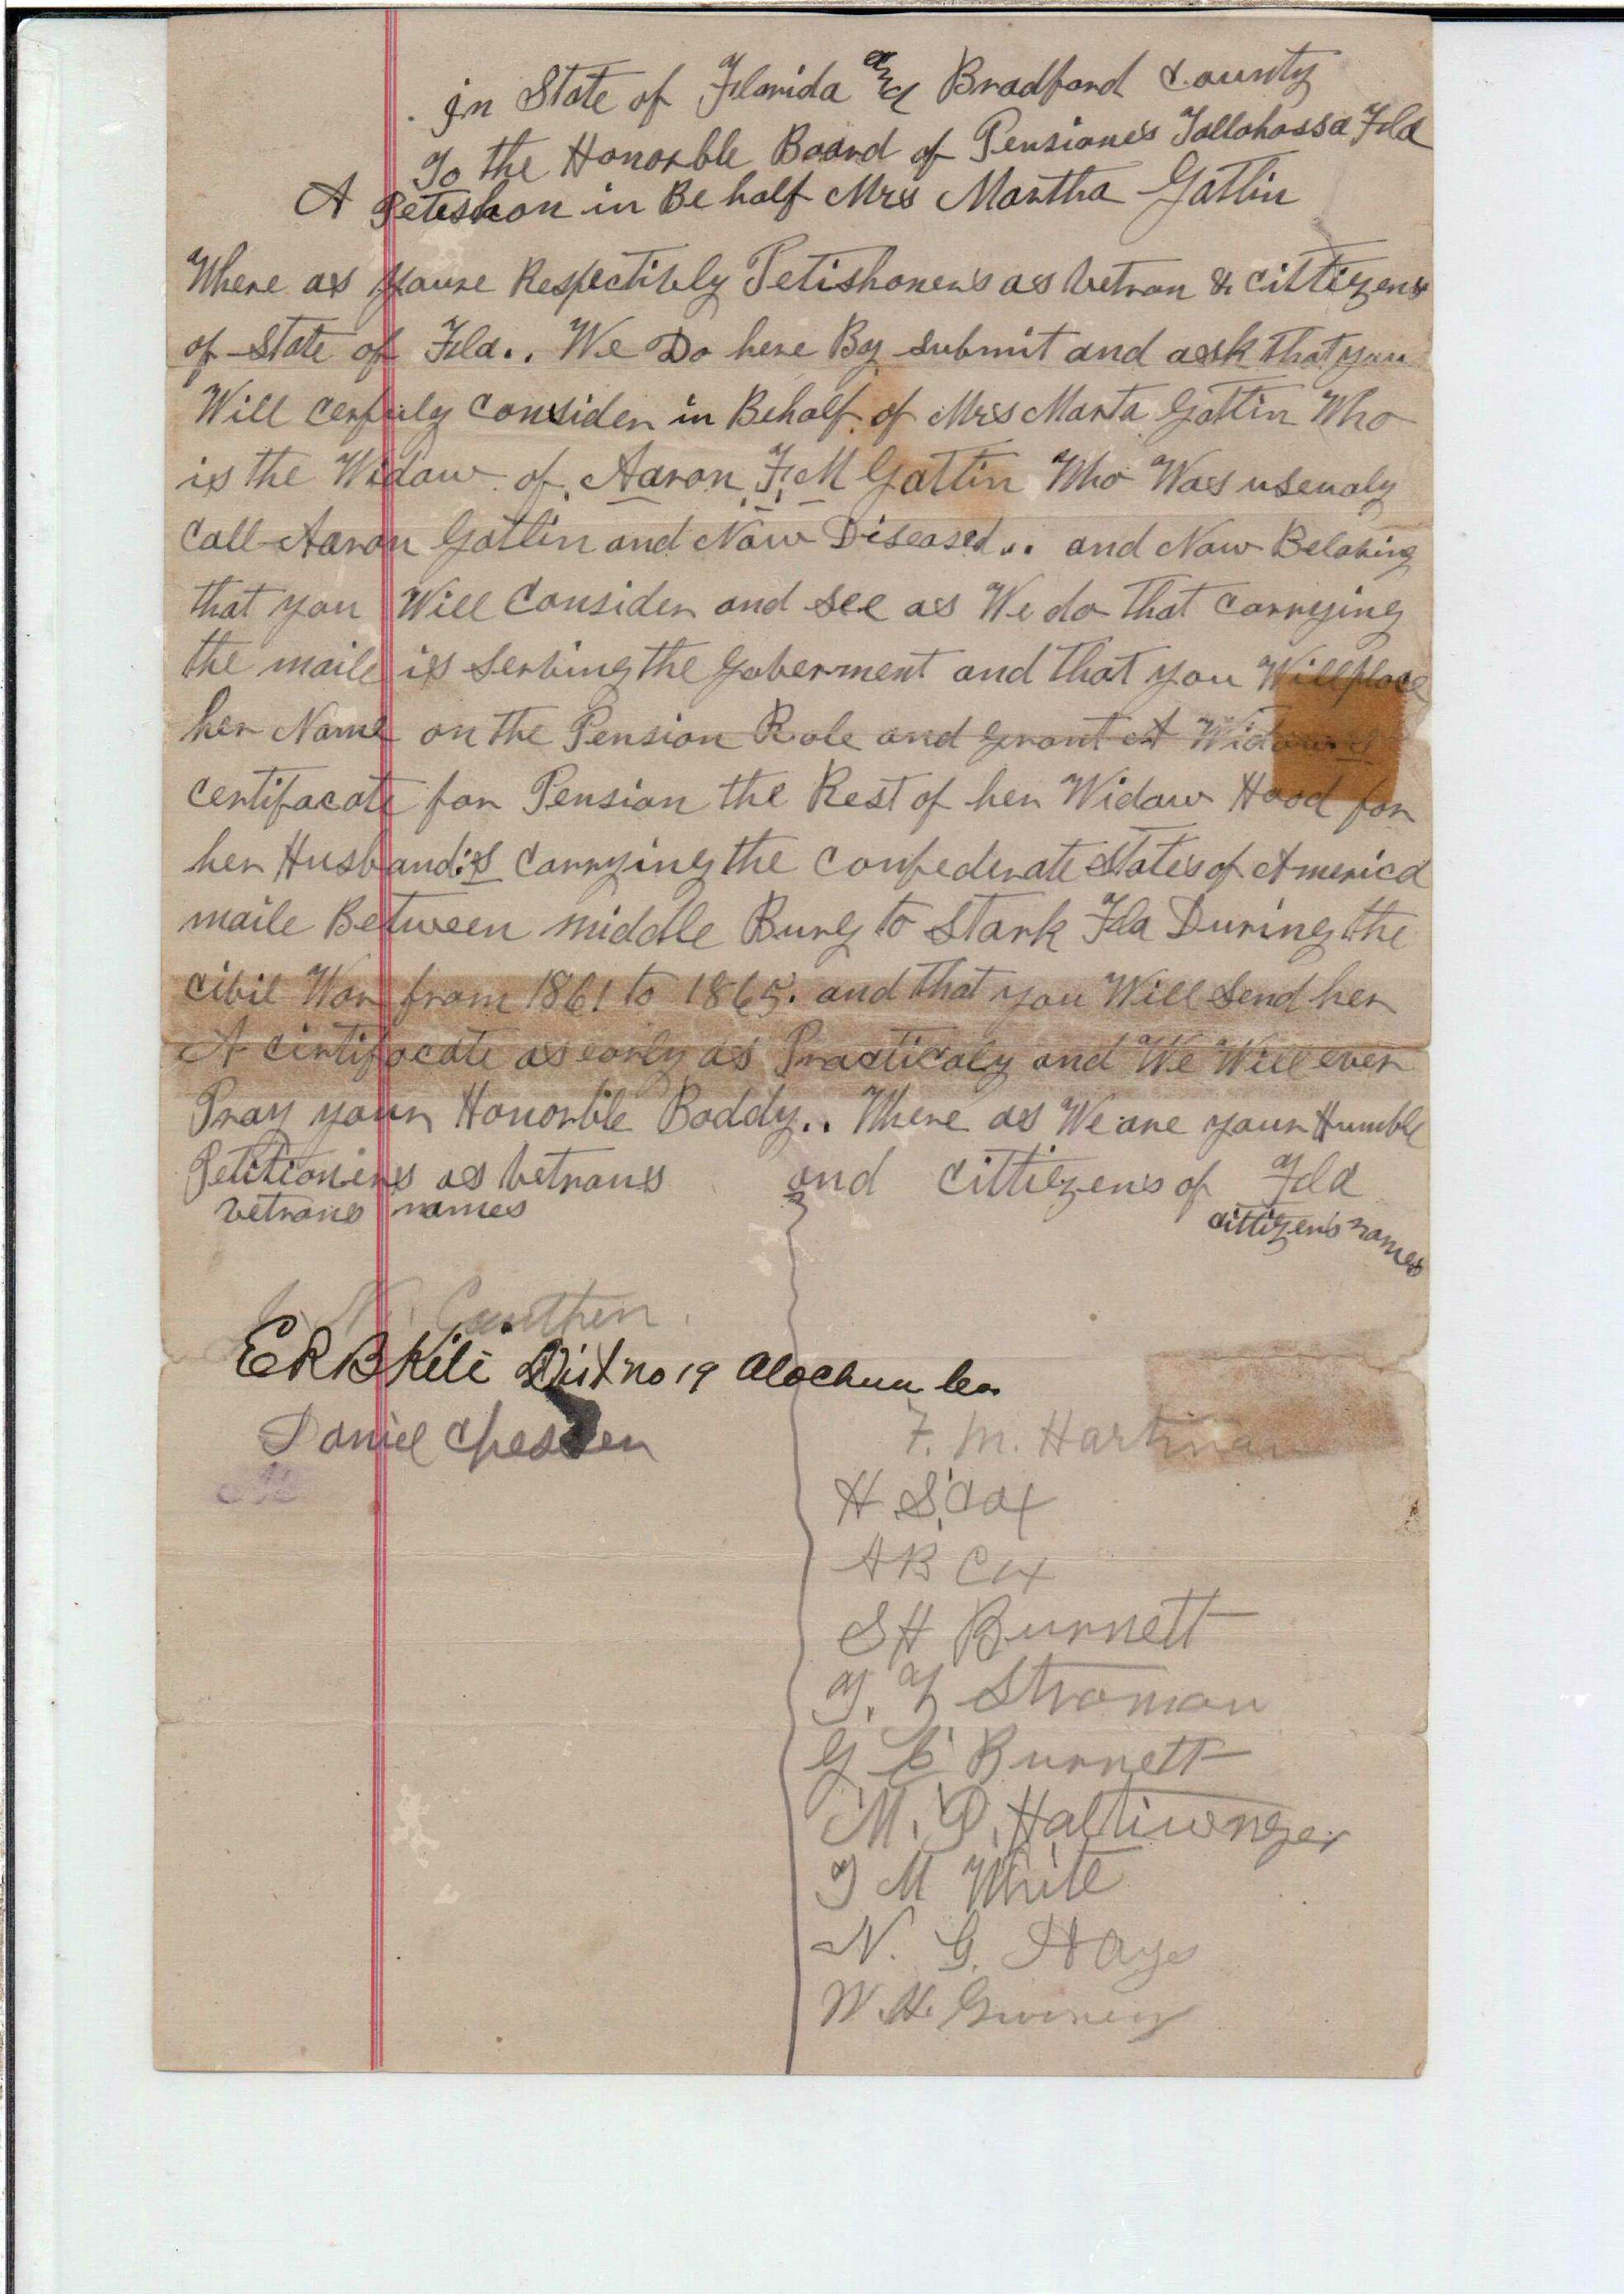 In State of Florida and Bradford County
To the Honorble Board of Pensione's Tallohassa Fla
A Petishon in Behalf Mrs Martha Gatlin
Where as youre Respectibly Petishoner's as vetran & cittizens
of State of Fla.. We Do here By submit and ask that you
Will cerfuly consider in Behalf of Mrs Marta Gatlin Who
is the Widow of Aaron F. M Gatlin Who Was useualy
Call Aaron Gatlin and Now Diseased.. and Now Belabing
that you Will Consider and see as We do that carrying
the maile is serbing the goberment and that you Will place
her Name on the Pension Role and grant A Widow's
certifacate for Pension the Rest of her Widow Hood for
her Husband's Carrying the confederate States of America
maile Between middle Burg to Stark Fla During the
cibil War from 1861 to 1865. and that you Will send her
A cirtifacate as early as Practicaly and We Will ever
Pray your Honorble Boddy.. Where as We are your Humble
Petitioners as vetrans and cittiezens of Fla
vetrans names cittizens names
N. Cauthen
E R B Kite Dist no 19 Alachua Co.
Daniel
F. M. Hartman
H S. Cox
A B Cox
S H Burnett
Stroman
G E Burnett
M. D. Haltiwnger
J M White
N. G. Hays
W. H.